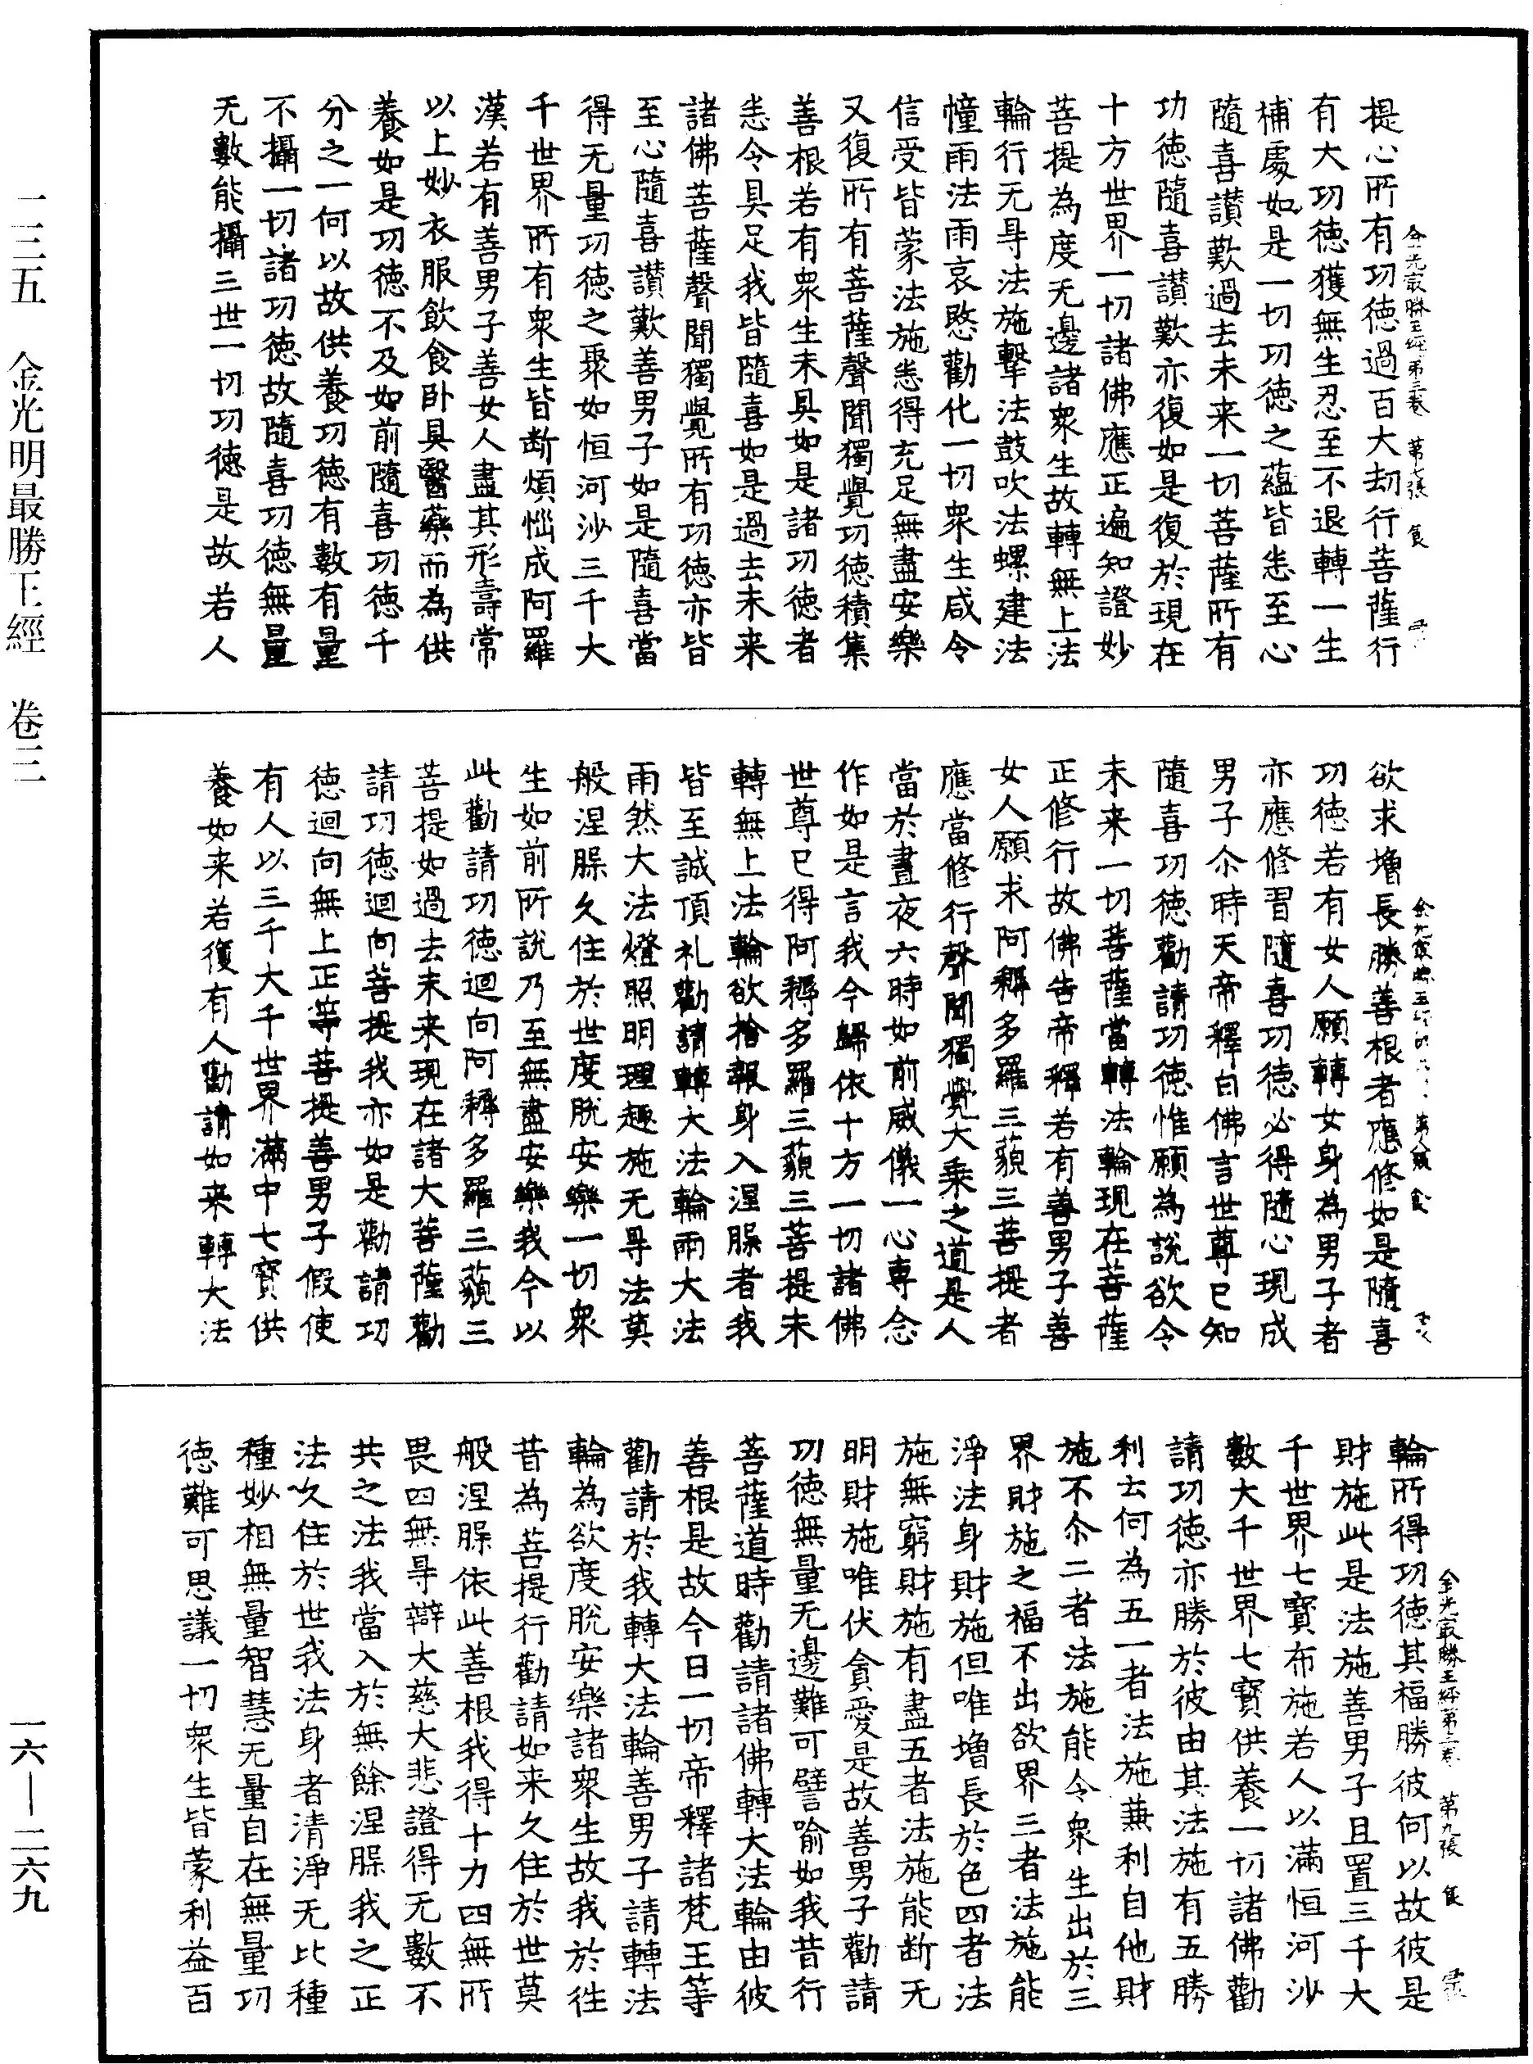 提心所有功德過百大劫行菩薩行
有大功德獲無生忍至不退轉一生
補處如是一切功德之蘊皆悉至心
隨喜讃歎過去未来一切菩薩所有
功德隨喜讃歎亦復如是復於現在
十方世界一切諸佛應正遍知證妙
菩提為度无邊諸衆生故轉無上法
輪行无㝵法施擊法鼓吹法螺建法
幢雨法雨哀愍勸化一切衆生咸令
信受皆蒙法施悉得充足無盡安樂
又復所有菩薩聲聞獨覺功德積集
善根若有衆生未具如是諸功德者
悉令具足我皆隨喜如是過去未来
諸佛菩薩聲聞獨覺所有功德亦皆
至心隨喜讃歎善男子如是隨喜當
得无量功德之聚如恒河沙三千大
千世界所有衆生皆断煩惱成阿羅
漢若有善男子善女人盡其形壽常
以上妙衣服飲食卧具醫藥而為供
養如是功德不及如前隨喜功德千
分之一何以故供養功德有數有量
不攝一切諸功德故隨喜功德無量
无數能攝三世一切功德是故若人
金光最勝王經第三卷 第七張 食
欲求增長勝善根者應修如是隨喜
功德若有女人願轉女身為男子者
亦應修習隨喜功德必得隨心現成
男子尒時天帝釋白佛言世尊已知
隨喜功德勸請功德惟願為說欲令
未来一切菩薩當轉法輪現在菩薩
正修行故佛告帝釋若有善男子善
女人願求阿耨多羅三藐三菩提者
應當修行聲聞獨覺大乘之道是人
當於晝夜六時如前威儀一心專念
作如是言我今歸依十方一切諸佛
世尊已得阿耨多羅三藐三菩提未
轉無上法輪欲捨報身入涅槃者我
皆至誠頂礼勸請轉大法輪雨大法
雨然大法燈照明理趣施无㝵法莫
般涅槃久住於世度脫安樂一切衆
生如前所說乃至無盡安樂我今以
此勸請功德迴向阿耨多羅三藐三
菩提如過去未来現在諸大菩薩勸
請功德迴向菩提我亦如是勸請功
德迴向無上正等菩提善男子假使
有人以三千大千世界滿中七寶供
養如来若復有人勸請如来轉大法
輪所得功德其福勝彼何以故彼是
財施此是法施善男子且置三千大
千世界七寶布施若人以滿恒河沙
數大千世界七寶供養一切諸佛勸
請功德亦勝於彼由其法施有五勝
利云何為五一者法施兼利自他財
施不尒二者法施能令衆生出於三
界財施之福不出欲界三者法施能
淨法身財施但唯增長於色四者法
施無窮財施有盡五者法施能断无
明財施唯伏貪愛是故善男子勸請
功德無量无邊難可譬喻如我昔行
菩薩道時勸請諸佛轉大法輪由彼
善根是故今日一切帝釋諸梵王等
勸請於我轉大法輪善男子請轉法
輪為欲度脫安樂諸衆生故我於往
昔為菩提行勸請如来久住於世莫
般涅槃依此善根我得十力四無所
畏四無㝵辯大慈大悲證得无數不
共之法我當入於無餘涅槃我之正
法久住於世我法身者清淨无比種
種妙相無量智慧无量自在無量功
德難可思議一切衆生皆蒙利益百
金光最勝王經第三卷 第九張 食
一二三五 金光明最勝王經 卷三
一六—二六九